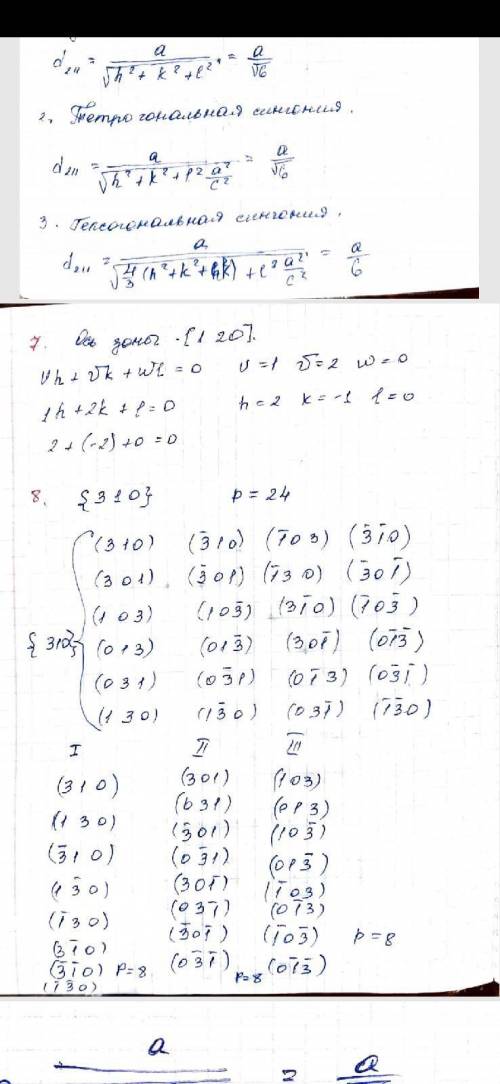 d₂₁₁ = a / √(h² + k² + l²) = a/√6
2. Тетрогональная сингония.
d₂₁₁ = a / √(h² + k² + l² a²/c²) = a/√6
3. Гексогональная сингония.
d₂₁₁ = a / √(4/3 (h² + k² + hk) + l² a²/c²) = a/6
7. Ось зоны - [1 2 0].
Uh + Vk + Wl = 0 U=1 V=2 W=0
1h + 2k + l = 0 h = 2 k = -1 l = 0
2 + (-2) + 0 = 0
8. {3 1 0} p = 24
(3 1 0) (3̄ 1 0) (1̄ 0 3) (3̄ 1̄ 0)
(3 0 1) (3̄ 0 1) (1̄ 3 0) (3̄ 0 1̄)
(1 0 3) (1 0 3̄) (3 1̄ 0) (1̄ 0 3̄)
{310} (0 1 3) (0 1 3̄) (3 0 1̄) (0 1̄ 3̄)
(0 3 1) (0 3̄ 1) (0 1̄ 3) (0 3̄ 1̄)
(1 3 0) (1 3̄ 0) (0 3 1̄) (1̄ 3̄ 0)
I II III
(3 1 0) (3 0 1) (1 0 3)
(1 3 0) (0 3 1) (0 1 3)
(3̄ 1 0) (3̄ 0 1) (1 0 3̄)
(1 3̄ 0) (0 3̄ 1) (0 1 3̄)
(1̄ 3 0) (3 0 1̄) (1̄ 0 3)
(3 1̄ 0) (0 3 1̄) (0 1̄ 3)
(3̄ 1̄ 0) P=8 (3̄ 0 1̄) (1̄ 0 3̄) p = 8
(1̄ 3̄ 0) (0 3̄ 1̄) p=8 (0 1̄ 3̄)
a = a